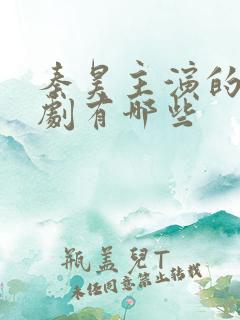 秦昊主演的
劇有哪些
瓶蓋兒T
未经同意禁止转载